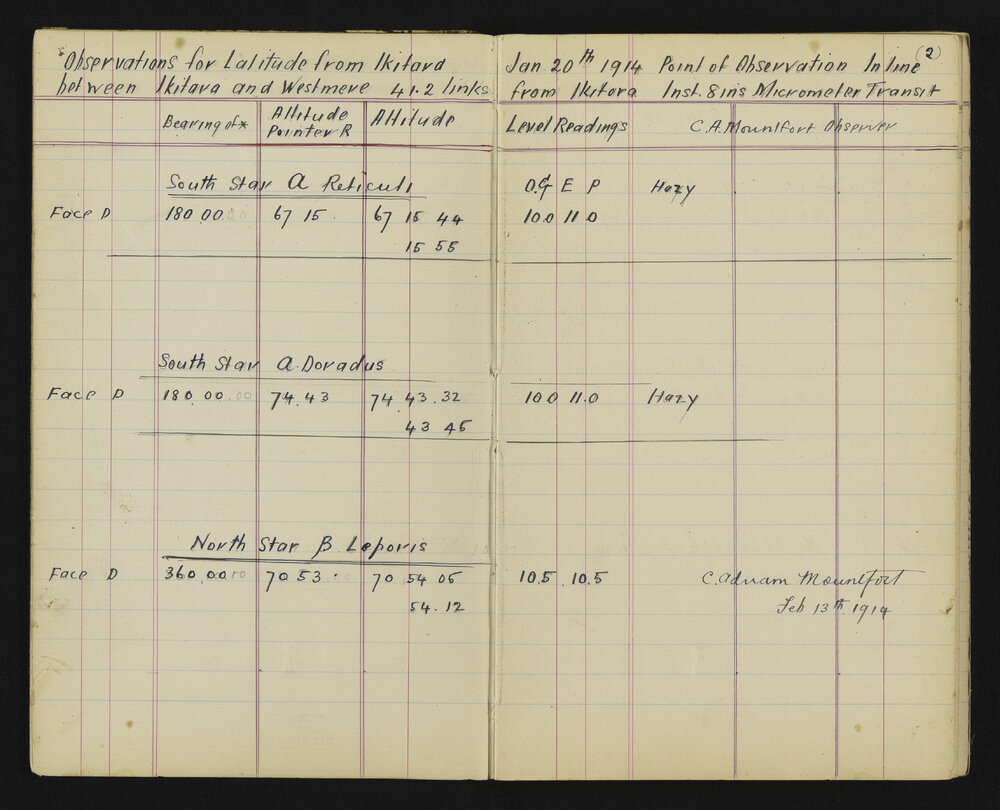 Observations for Latitude from Ikitara
between Ikitara and Westmere 41.2 links
Bearing of * Altitude Pointer R Altitude
South Star A Reticuli
Face D 180 00 00 67 15 67 15 44
15 55
South Star A Doradus
Face D 180.00.00 74.43 74.43.32
43 45
North Star β Leporis
Face D 360.00.00 70 53 70 54 05
54.12
(2)
Jan 20th 1914 Point of Observation In line
from Ikitara Inst. 8 ins Micrometer Transit
Level Readings C.A. Mountfort Observer
O.G E P Hazy
10.0 11.0
10.0 11.0 Hazy
10.5 10.5 C. Adnam Mountfort
Feb 13th 1914